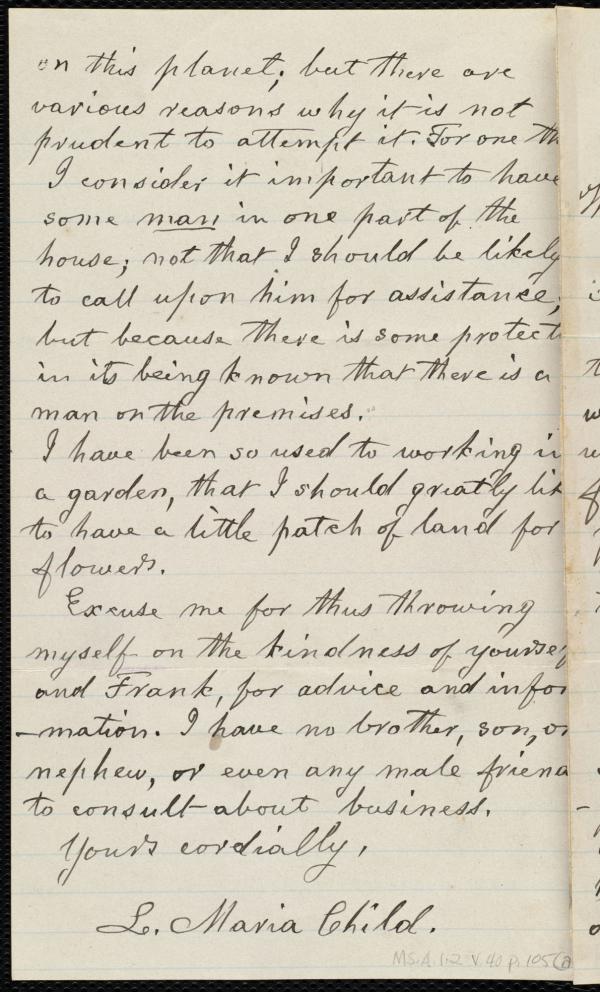 on this planet; but there are
various reasons why it is not
prudent to attempt it. For one th
I consider it important to have
some man in one part of the
house; not that I should be likely
to call upon him for assistance;
but because there is some protecti
in its being known that there is a
man on the premises.
I have been so used to working in
a garden, that I should greatly lik
to have a little patch of land for
flowers.
Excuse me for thus throwing
myself on the kindness of yoursef
and Frank, for advice and infor
-mation. I have no brother, son, or
nephew, or even any male friend
to consult about business.
Yours cordially,
L. Maria Child.
MS.A.1.2 v.40 p.105